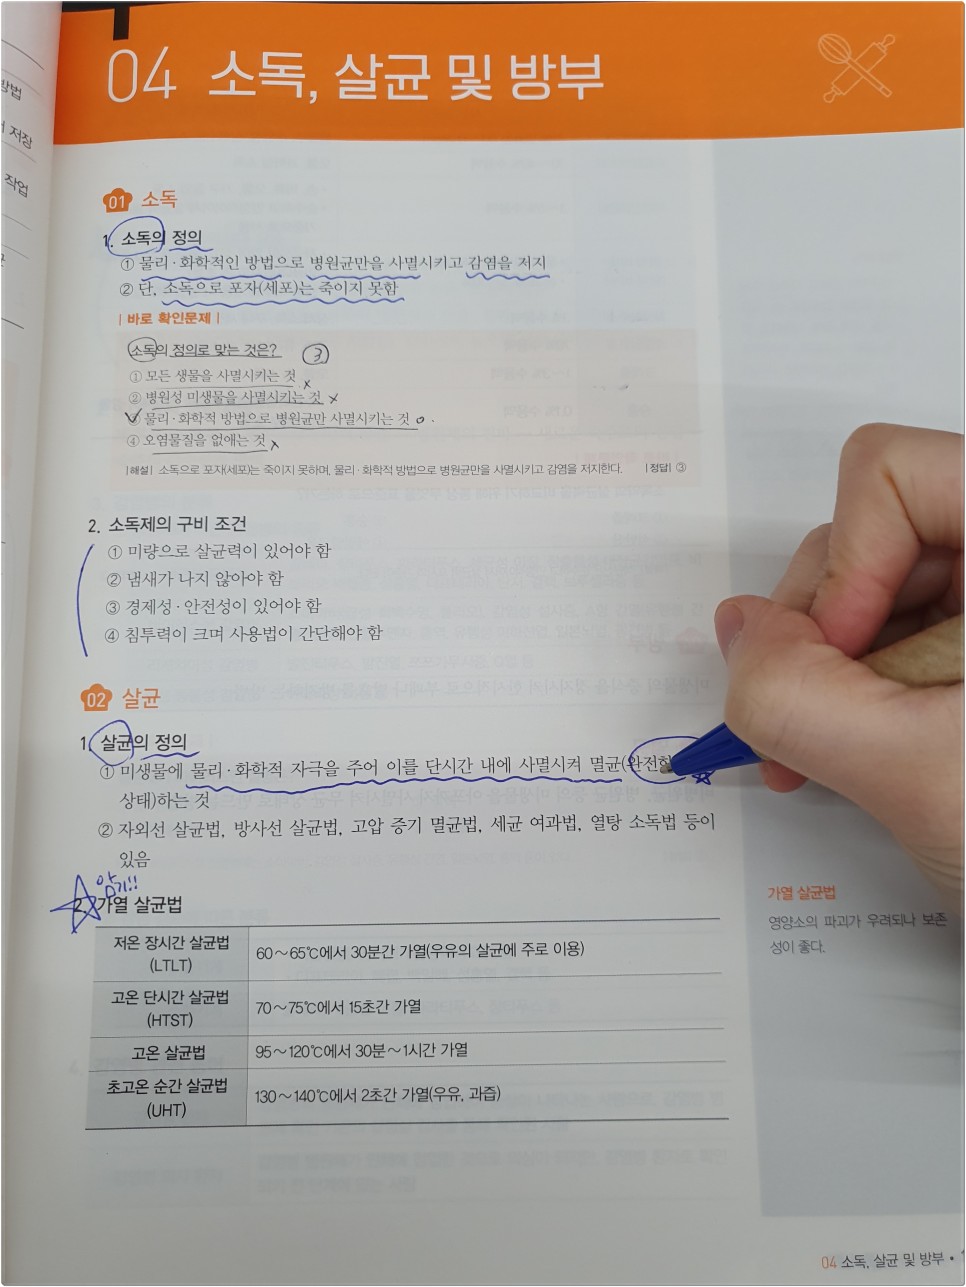 방법
저장
작업
04 소독, 살균 및 방부
01 소독
1. 소독의 정의
① 물리·화학적인 방법으로 병원균만을 사멸시키고 감염을 저지
② 단, 소독으로 포자(세포)는 죽이지 못함
| 바로 확인문제 |
소독의 정의로 맞는 것은? ③
① 모든 생물을 사멸시키는 것 x
② 병원성 미생물을 사멸시키는 것 x
③ 물리·화학적 방법으로 병원균만 사멸시키는 것 o
④ 오염물질을 없애는 것 x
|해설| 소독으로 포자(세포)는 죽이지 못하며, 물리·화학적 방법으로 병원균만을 사멸시키고 감염을 저지한다. |정답| ③
2. 소독제의 구비 조건
① 미량으로 살균력이 있어야 함
② 냄새가 나지 않아야 함
③ 경제성·안전성이 있어야 함
④ 침투력이 크며 사용법이 간단해야 함
02 살균
1. 살균의 정의
① 미생물에 물리·화학적 자극을 주어 이를 단시간 내에 사멸시켜 멸균(완전한
상태)하는 것
② 자외선 살균법, 방사선 살균법, 고압 증기 멸균법, 세균 여과법, 열탕 소독법 등이
있음
암기!!
2. 가열 살균법
저온 장시간 살균법
(LTLT)
60~65℃에서 30분간 가열(우유의 살균에 주로 이용)
고온 단시간 살균법
(HTST)
70~75℃에서 15초간 가열
고온 살균법
95~120℃에서 30분~1시간 가열
초고온 순간 살균법
(UHT)
130~140℃에서 2초간 가열(우유, 과즙)
가열 살균법
영양소의 파괴가 우려되나 보존
성이 좋다.
04 소독, 살균 및 방부 •